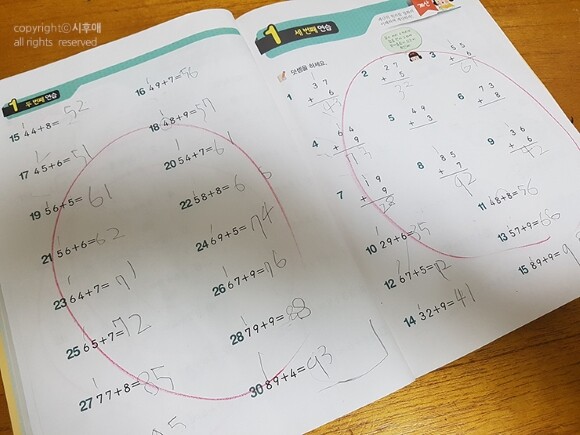 copyright©시후애
all rights reserved
1 두 번째 연습
15 44+8= 52
16 49+7= 56
17 45+6= 51
18 48+9= 57
19 56+5= 61
20 54+7= 61
21 56+6= 62
22 58+8= 66
23 64+7= 71
24 69+5= 74
25 65+7= 72
26 67+9= 76
27 77+8= 85
28 79+9= 88
30 89+4= 93
계산
1 세 번째 연습
덧셈을 하세요.
1
3 7
+ 6
43
2
2 7
+ 5
32
3
5 5
+ 6
4
6 4
+ 9
73
5
4 9
+ 3
6
7 3
+ 8
7
1 9
+ 9
28
8
8 5
+ 7
92
9
3 6
+ 6
42
10 29+6= 35
11 48+8= 56
12 67+5= 72
13 57+9= 66
14 32+9= 41
15 89+9= 9